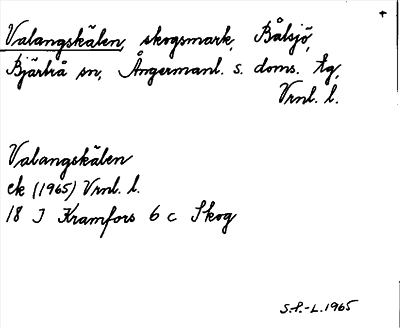 Valangskälen, skogsmark, Bålsjö,
Bjärtrå sn, Ångermanl. s. doms. tg,
Vrnl. l.
Valangskälen
ek (1965) Vrnl. l.
18 J Kramfors 6 c Skog
S.P.-L. 1965